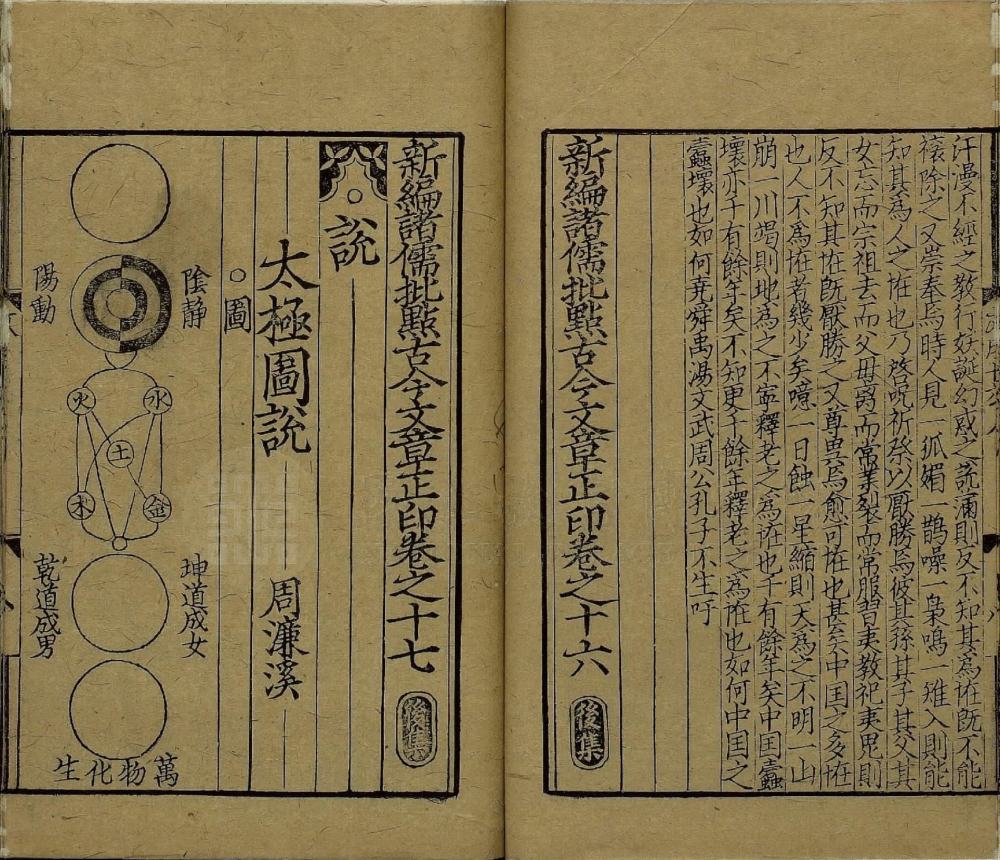 汗漫不經之教行妖誕幻惑之說滿則反不知其為恠既不能
禳除之又崇奉焉時人見一狐媚一鵲噪一梟鳴一雉入則能
知其為人之恠也乃啓呪祈祭以厭勝焉彼其孫其子其父其
女忘而宗祖去而父毋離而常業裂而常服習夷教祀夷鬼則
反不知其恠既厭勝之又尊異焉愈可恠也甚矣中国之多恠
也人不為恠者幾少矣噫一日蝕一星縮則天為之不明一山
崩一川竭則地為之不寧釋老之為恠也千有餘年矣中国蠹
壞亦千有餘年矣不知更千餘年釋老之為恠也如何中国之
蠹壞也如何堯舜禹湯文武周公孔子不生吁
新編諸儒批點古今文章正印卷之十六 後集
新編諸儒批點古今文章正印卷之十七 後集
說
太極圖說 周濂溪
圖
陰静
陽動
水
火
土
金
木
坤道成女
乾道成男
萬物化生